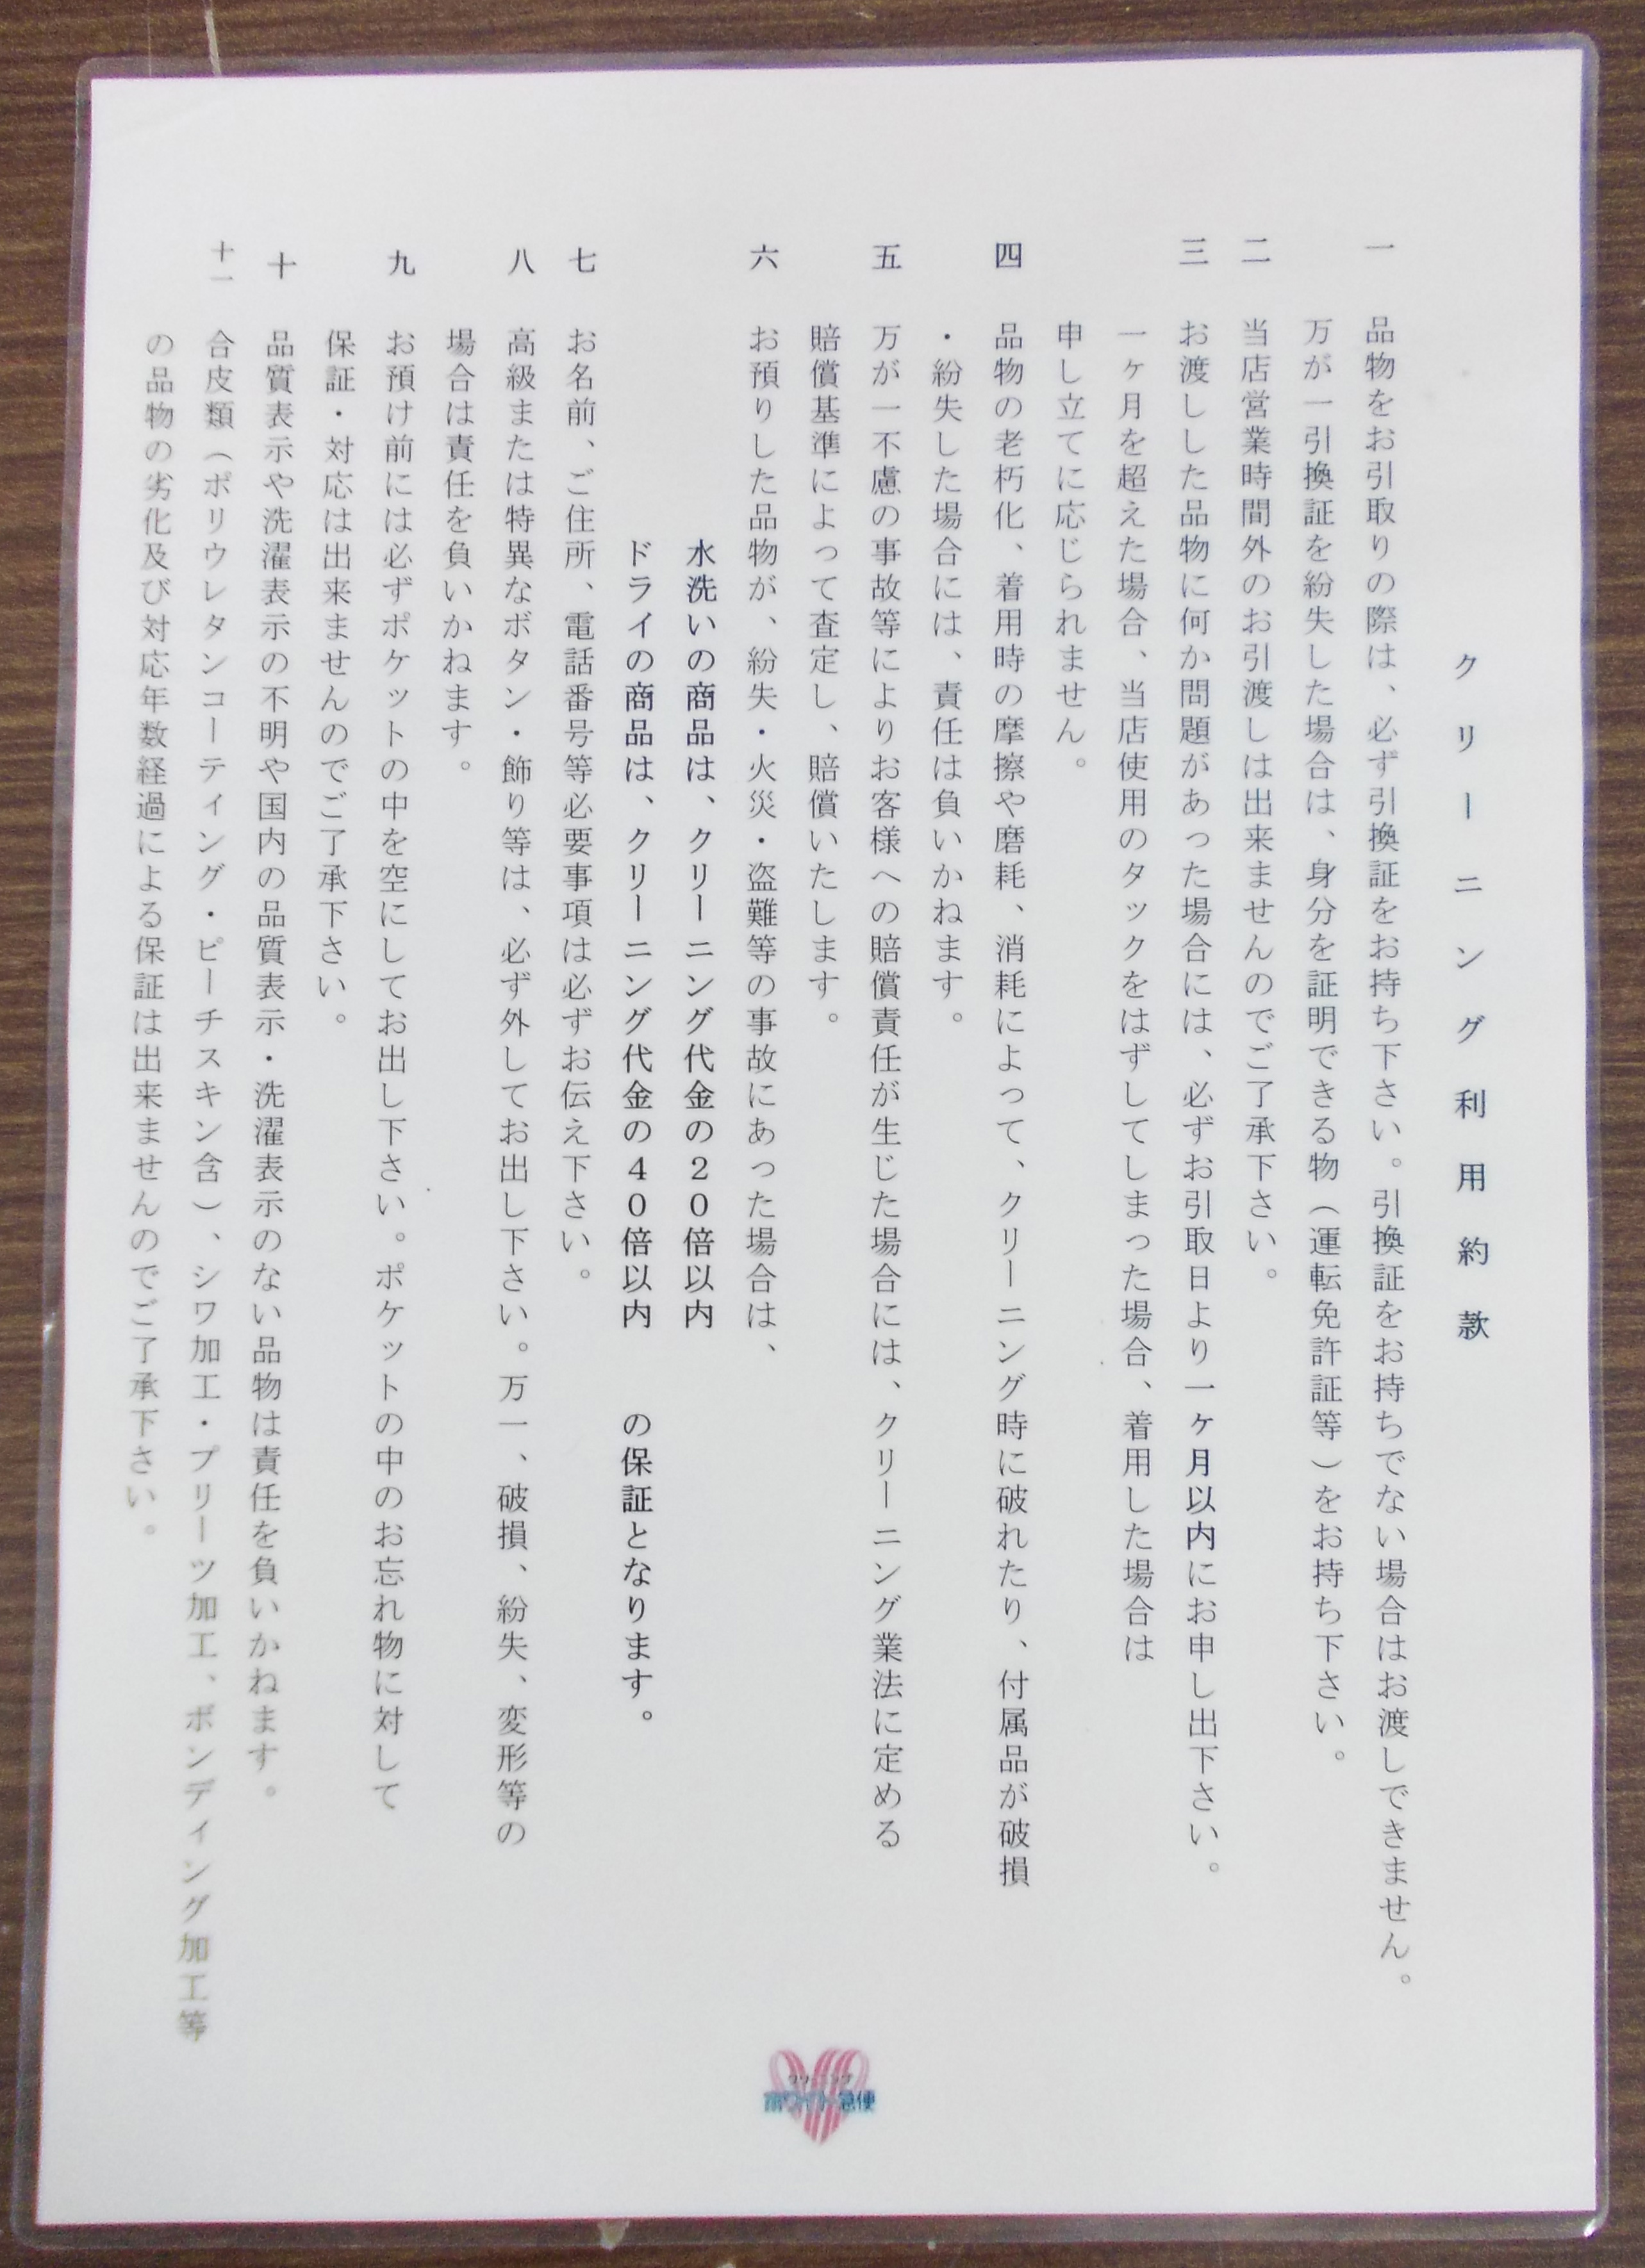 クリーニング利用約款
一　品物をお引取りの際は、必ず引換証をお持ち下さい。引換証をお持ちでない場合はお渡しできません。
万が一引換証を紛失した場合は、身分を証明できる物（運転免許証等）をお持ち下さい。
二　当店営業時間外のお引渡しは出来ませんのでご了承下さい。
三　お渡しした品物に何か問題があった場合には、必ずお引取日より一ヶ月以内にお申し出下さい。
一ヶ月を超えた場合、当店使用のタックをはずしてしまった場合、着用した場合は
申し立てに応じられません。
四　品物の老朽化、着用時の摩擦や磨耗、消耗によって、クリーニング時に破れたり、付属品が破損
・紛失した場合には、責任は負いかねます。
五　万が一不慮の事故等によりお客様への賠償責任が生じた場合には、クリーニング業法に定める
賠償基準によって査定し、賠償いたします。
六　お預りした品物が、紛失・火災・盗難等の事故にあった場合は、
水洗いの商品は、クリーニング代金の２０倍以内
ドライの商品は、クリーニング代金の４０倍以内　の保証となります。
七　お名前、ご住所、電話番号等必要事項は必ずお伝え下さい。
八　高級または特異なボタン・飾り等は、必ず外してお出し下さい。万一、破損、紛失、変形等の
場合は責任を負いかねます。
九　お預け前には必ずポケットの中を空にしてお出し下さい。ポケットの中のお忘れ物に対して
保証・対応は出来ませんのでご了承下さい。
十　品質表示や洗濯表示の不明や国内の品質表示・洗濯表示のない品物は責任を負いかねます。
十一　合皮類（ポリウレタンコーティング・ピーチスキン含）、シワ加工・プリーツ加工、ボンディング加工等
の品物の劣化及び対応年数経過による保証は出来ませんのでご了承下さい。
クリーニング
ホワイト急便